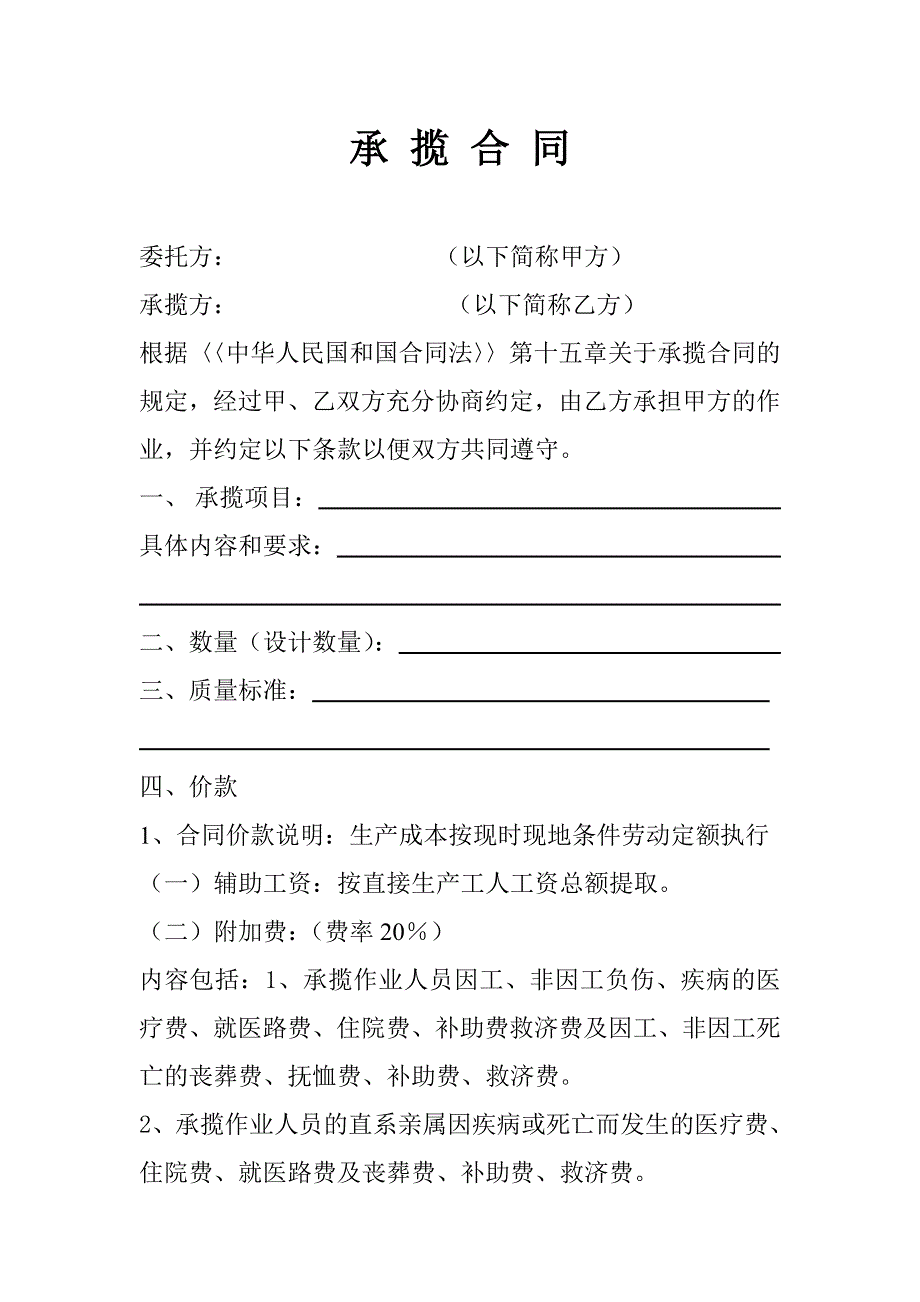 承 揽 合 同
委托方： （以下简称甲方）
承揽方： （以下简称乙方）
根据〈〈中华人民国和国合同法〉〉第十五章关于承揽合同的
规定，经过甲、乙双方充分协商约定，由乙方承担甲方的作
业，并约定以下条款以便双方共同遵守。
一、 承揽项目：
具体内容和要求：
二、数量（设计数量）：
三、质量标准：
四、价款
1、合同价款说明：生产成本按现时现地条件劳动定额执行
（一）辅助工资：按直接生产工人工资总额提取。
（二）附加费：（费率 20％）
内容包括：1、承揽作业人员因工、非因工负伤、疾病的医
疗费、就医路费、住院费、补助费救济费及因工、非因工死
亡的丧葬费、抚恤费、补助费、救济费。
2、承揽作业人员的直系亲属因疾病或死亡而发生的医疗费、
住院费、就医路费及丧葬费、补助费、救济费。